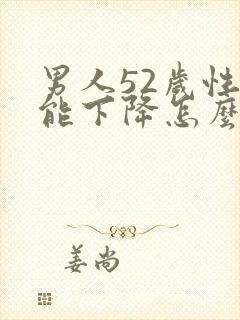 男人52歲性
能下降怎麼
姜尚